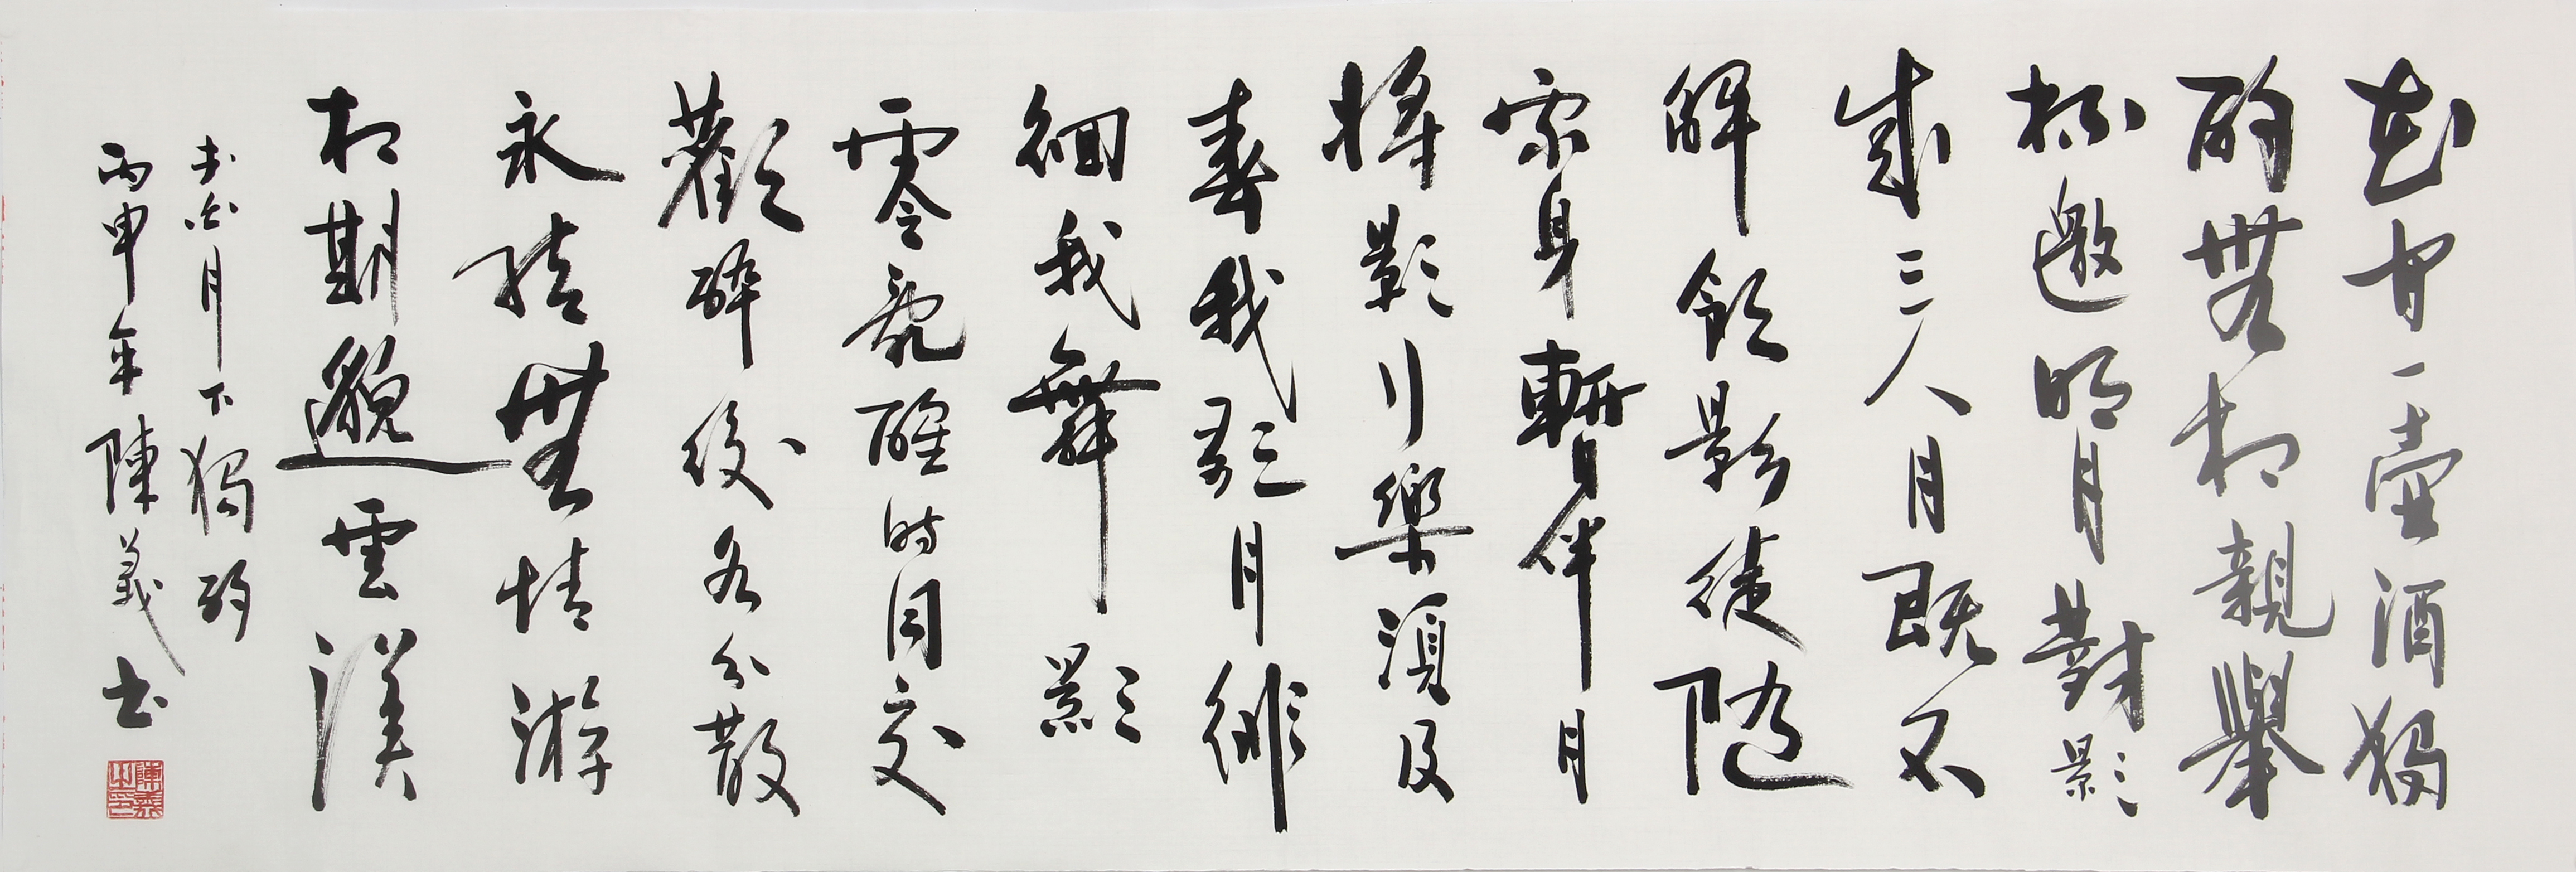 花間一壺酒獨
酌無相親舉
杯邀明月對影
成三人月既不
解飲影徒隨
我身暫伴月
將影行樂須及
春我歌月徘
徊我舞影
零亂醒時同交
歡醉後各分散
永結無情游
相期邈雲漢
李白月下獨酌
丙申年陳義书
陳義之印